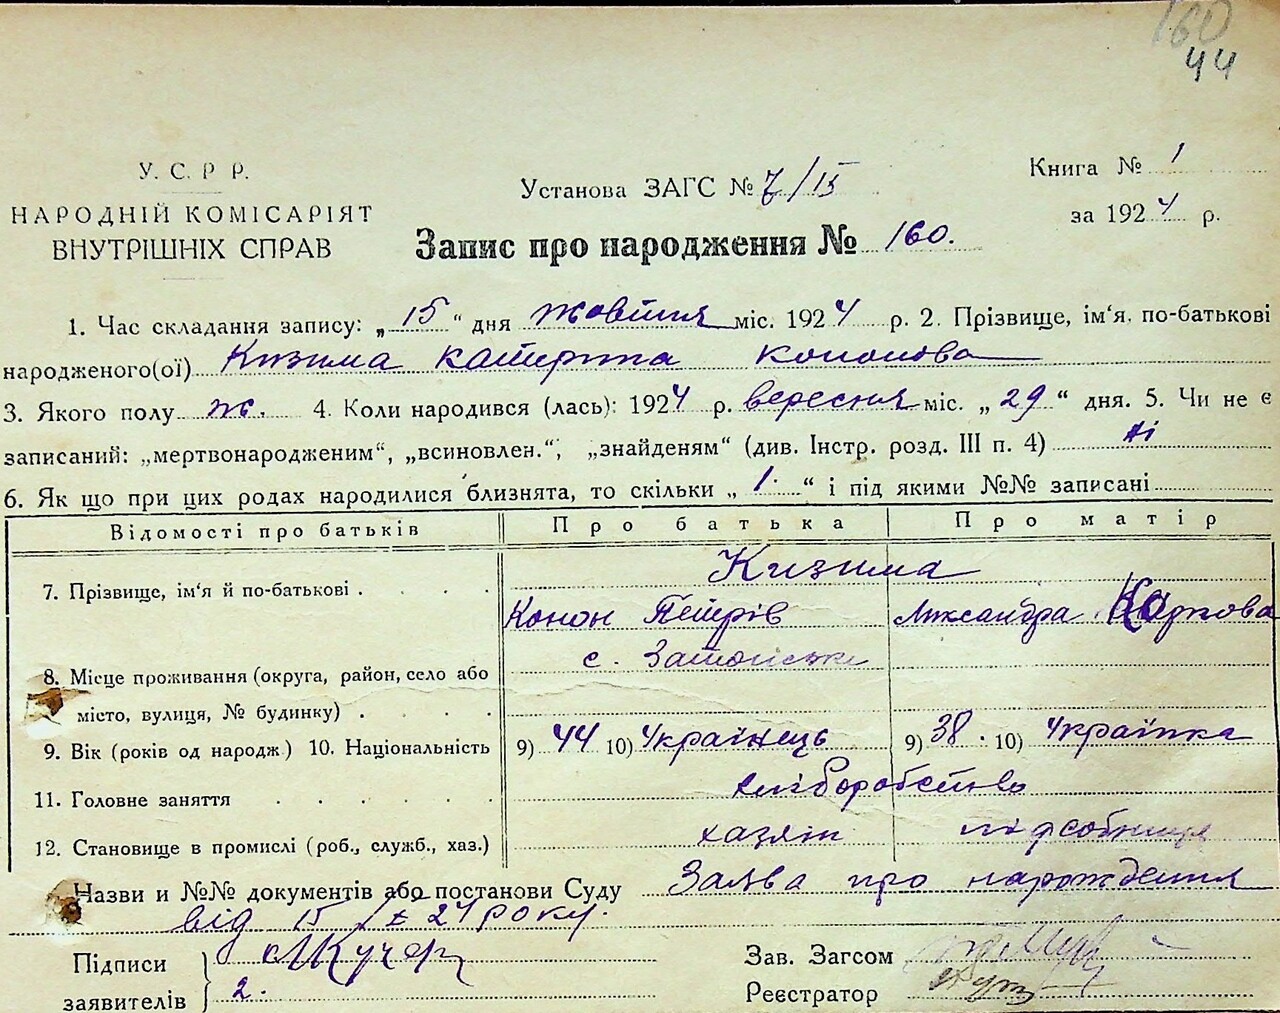 160
44
У. С. Р Р.
НАРОДНІЙ КОМІСАРІЯТ
ВНУТРІШНІХ СПРАВ
Установа ЗАГС № 7/15
Книга № 1
за 1924 р.
Запис про народження № 160.
1. Час складання запису: „15“ дня жовтня міс. 1924 р. 2. Прізвище, ім'я, по-батькові
народженого(ої) Кизима Катерина Кононова
3. Якого полу ж. 4. Коли народився (лась): 1924 р. вересня міс. „29“ дня. 5. Чи не є
записаний: „мертвонародженим“, „всиновлен.“, „знайденям“ (див. Інстр. розд. III п. 4) ні
6. Як що при цих родах народилися близнята, то скільки „1.“ і під якими №№ записані
Відомості про батьків Про батька Про матір
Кизима
7. Прізвище, ім'я й по-батькові . . . .
Конон Петрів Александра Карпова
8. Місце проживання (округа, район, село або с.
місто, вулиця, № будинку) . . . .
9. Вік (років од народж) 10. Національність 9) 44 10) Українець 9) 38. 10) Українка
11. Головне заняття . . . . . . хліборобство
12. Становище в промислі (роб., служб., хаз.) хазяїн підсобниця
Назви и №№ документів або постанови Суду Заява про народження
від 15/X 24 року.
Підписи
заявителів
2.
Зав. Загсом
Реєстратор